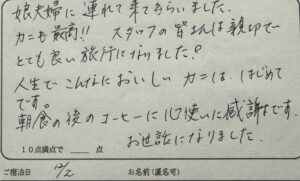 娘夫婦に連れて来てもらいました.
カニも最高!! スタッフの皆さんは親切で
とても良い旅行になりました!
人生でこんなにおいしいカニは、はじめて
です。
朝食の後のコーヒーに心使いに感謝です.
お世話になりました.
10点満点で 点
ご宿泊日 12/2 お名前(匿名可)